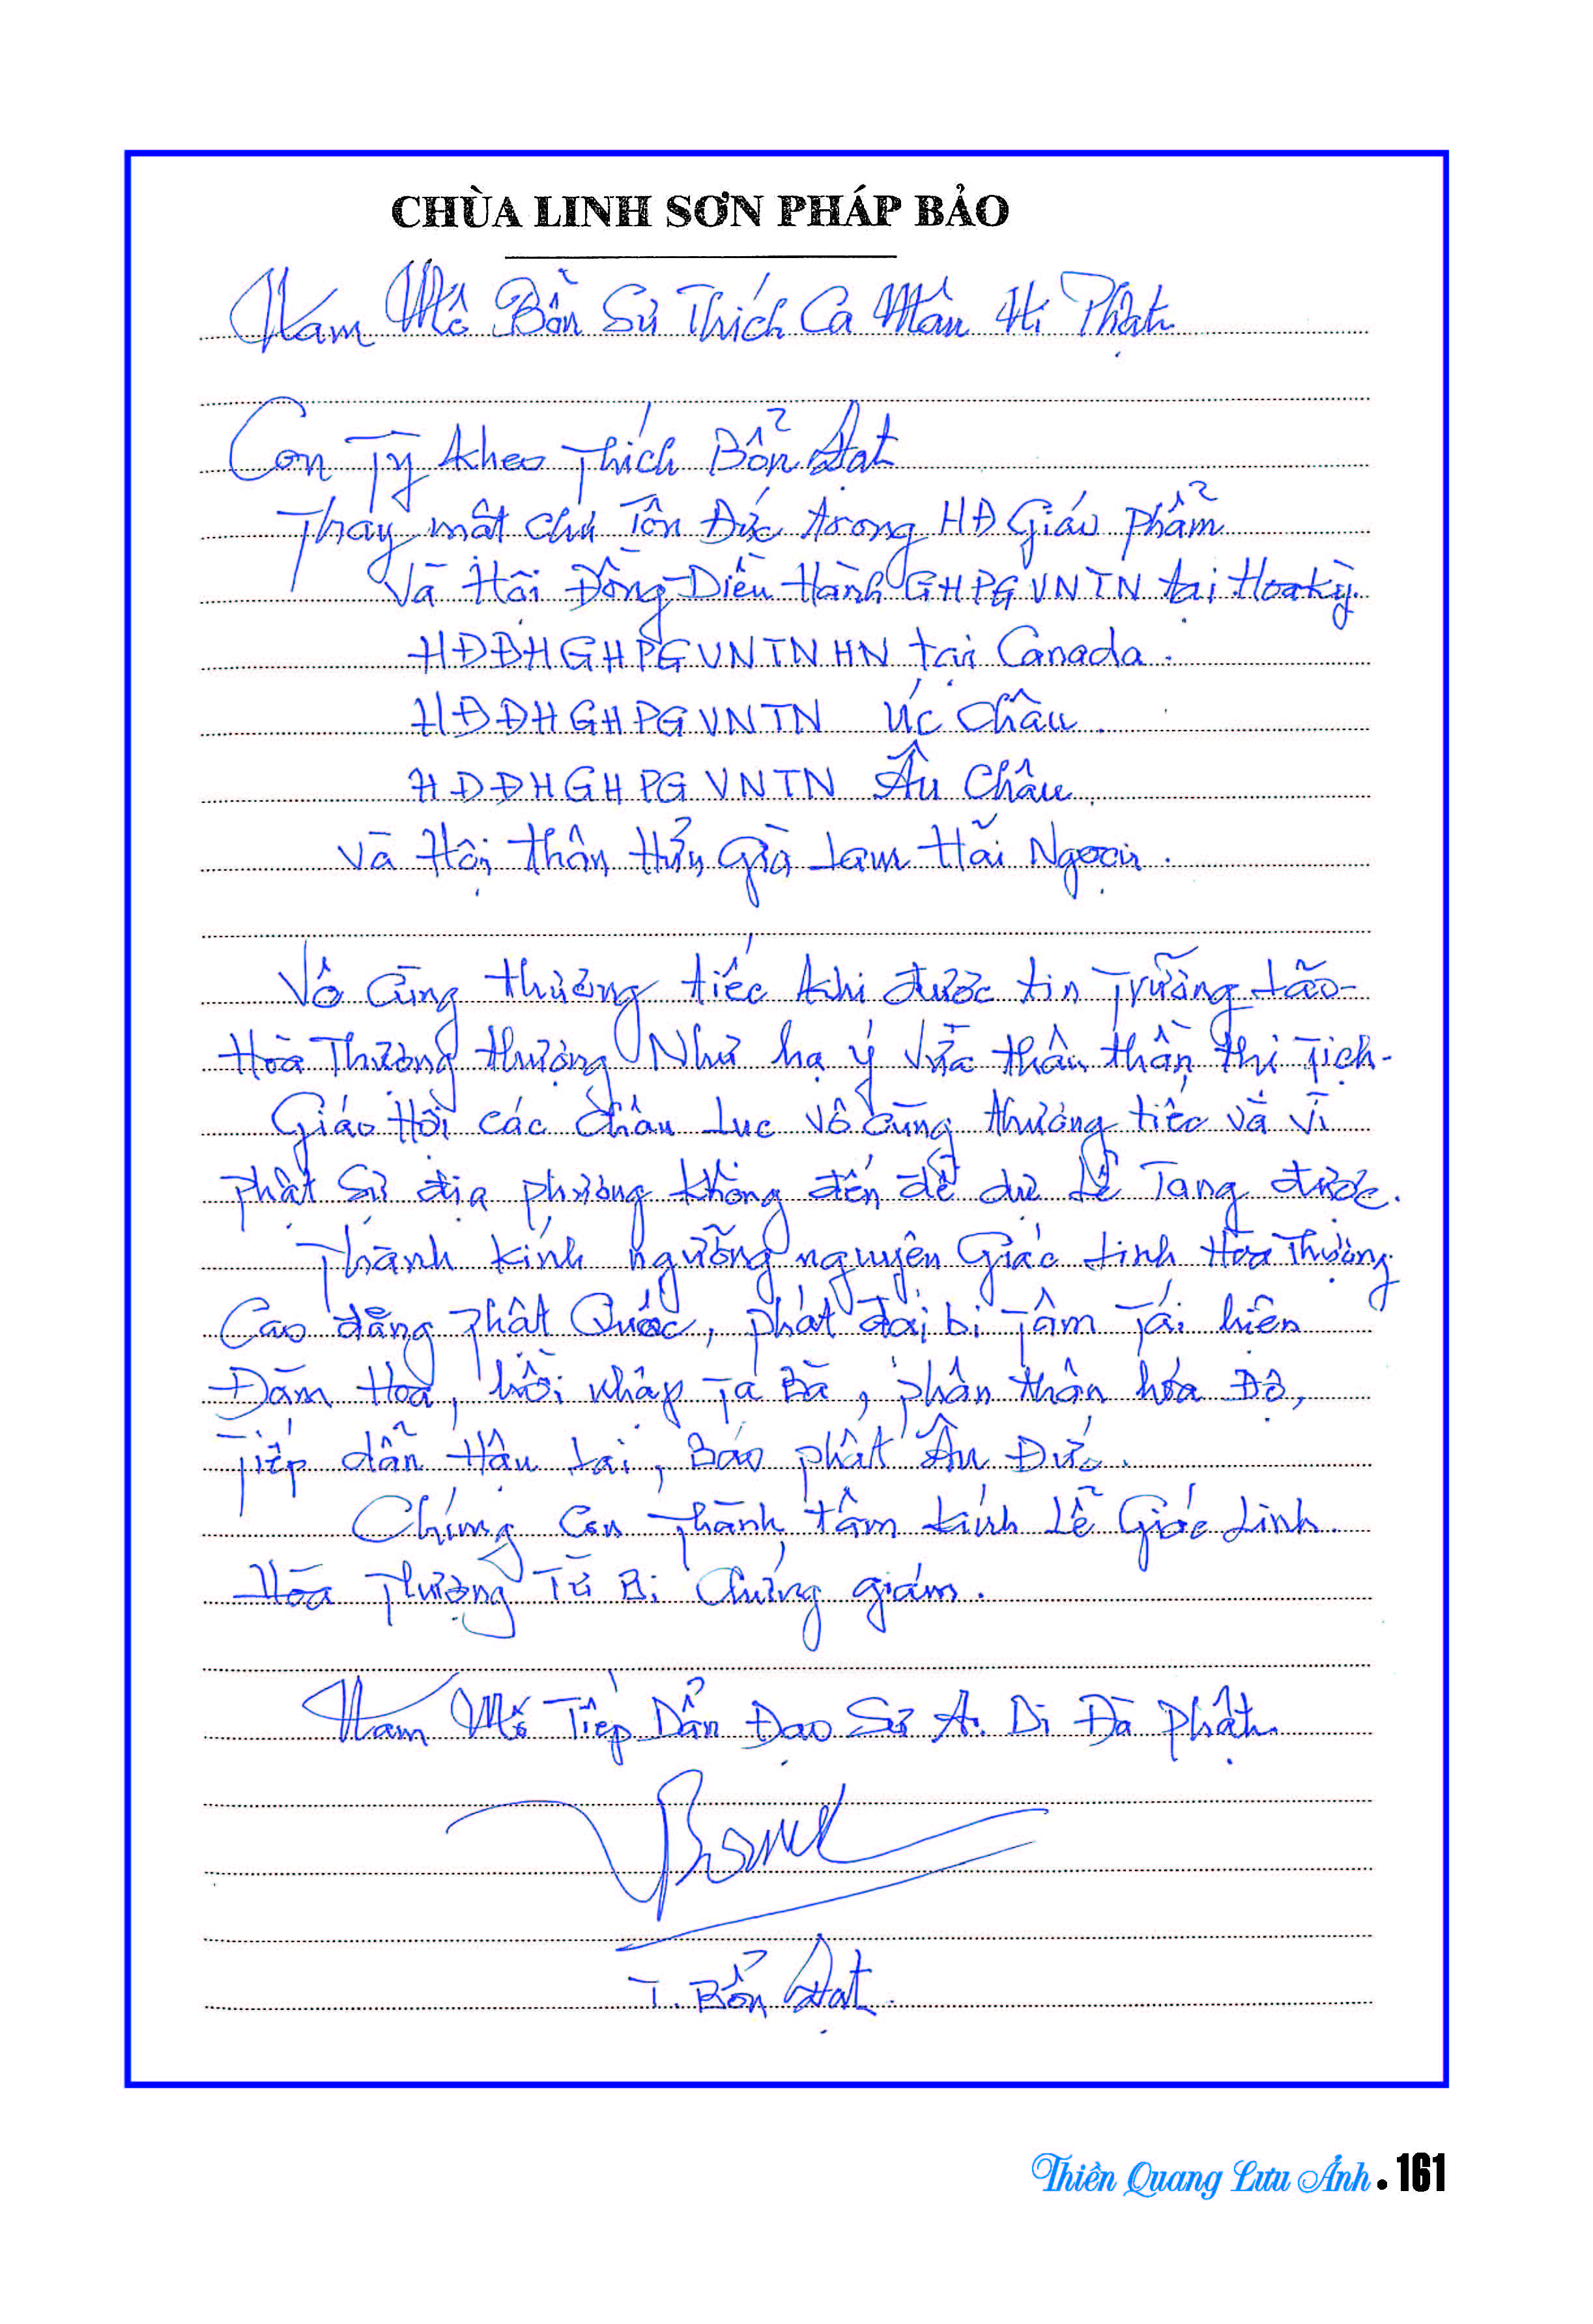 CHÙA LINH SƠN PHÁP BẢO
Nam Mô Bổn Sư Thích Ca Mâu Ni Phật
Con Tỳ kheo Thích Bổn Đạt
Thay mặt chư Tôn Đức trong HĐ Giáo phẩm
Và Hội Đồng Điều Hành GHPGVNTN tại Hoa kỳ.
HĐĐHGHPGVNTNHN tại Canada.
HĐĐHGHPGVNTN Úc Châu.
HĐĐHGHPGVNTN Âu Châu.
và Hội thân Hữu Già Lam Hải Ngoại.
Vô cùng thương tiếc khi được tin Trưởng lão
Hòa Thượng thượng Như hạ ý thâu thần thị Tịch
Giáo Hội các Châu Lục Vô cùng thương tiếc và vì
phật sự địa phương không đến để dự Lễ Tang được.
Thành kính ngưỡng nguyện Giác Linh Hòa Thượng
Cao đăng Phật Quốc, phát đại bi Tâm Tái hiện
Đàm Hoa, hồi nhập Ta Bà, phân thân hóa Độ,
Tiếp dẫn Hậu Lai, Báo phật Ân Đức.
Chúng Con Thành tâm kính Lễ Giác Linh.
Hòa Thượng Từ Bi Chứng giám.
Nam Mô Tiếp Dẫn Đạo Sư A Di Đà Phật.
T. Bổn Đạt.
Thiền Quang Lưu Ảnh • 161